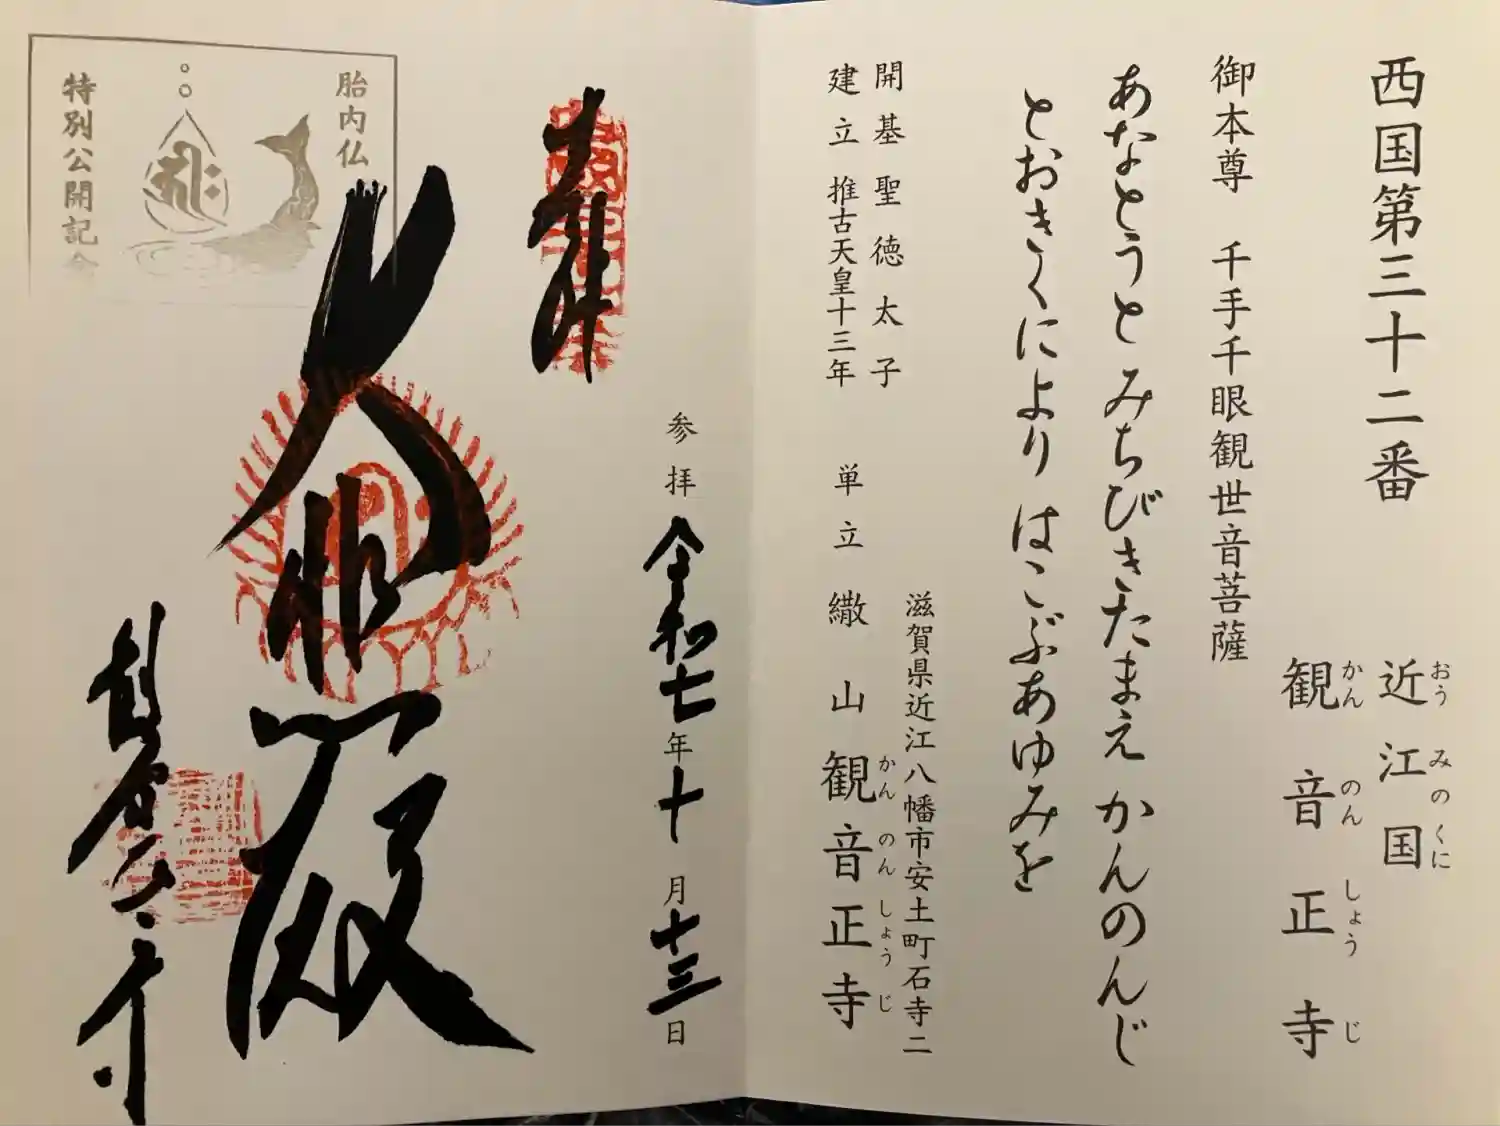 西国第三十二番
近江国
おうみのくに
観音正寺
かんのんしょうじ
御本尊 千手千眼観世音菩薩
あなとうと みちびきたまえ かんのんじ
とおきくにより はこぶあゆみを
滋賀県近江八幡市安土町石寺二
開基聖徳太子
建立 推古天皇十三年 単立 繖山 観音正寺
かんのんしょうじ
参拝 令和七年十月十三日
奉拝
大悲殿
観音正寺
胎内仏
特別公開記念